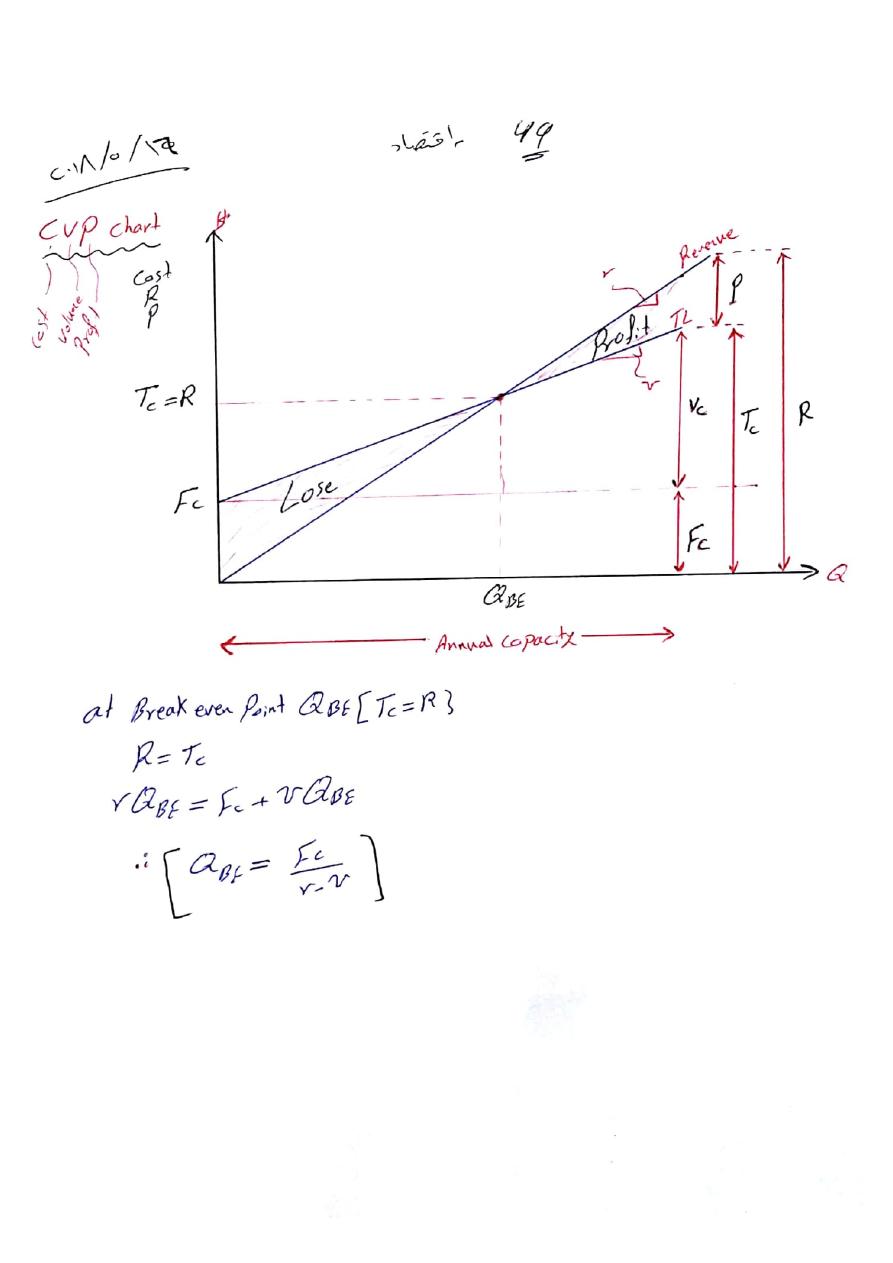 اقتصاد 49
CVP chart
Cost
Volume
Profit
Cost
R
P
Revenue
r
P
TC
Profit
v
Tc = R
Vc
Tc
R
Fc
Lose
Fc
Q
QBE
Annual Capacity
at Break even Point QBE [Tc = R}
R = Tc
rQBE = Fc + vQBE
∴ [QBE = Fc / r - v]